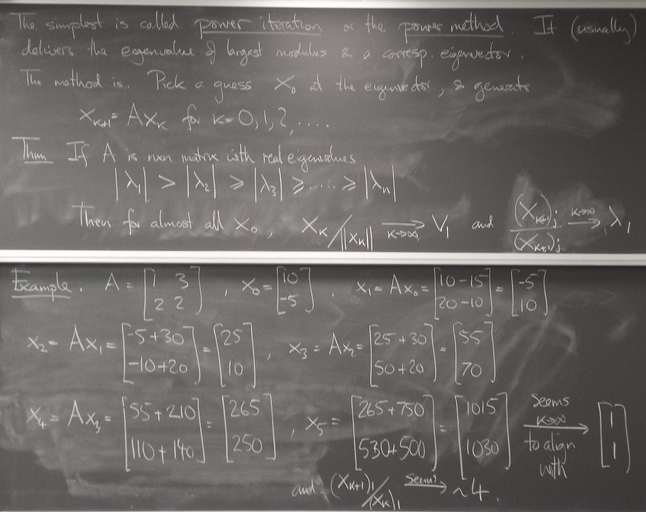 The simplest is called power iteration or the power method. It (usually)
delivers the eigenvalue of largest modulus & a corresp. eigenvector.
The method is.. Pick a guess X₀ at the eigenvector, & generate
X_{k+1} = AX_k for k=0,1,2,....
Thm If A is nxn matrix with real eigenvalues
|λ₁| > |λ₂| ≥ |λ₃| ≥ ..... ≥ |λ_n|
Then for almost all X₀, X_k/||X_k|| →_{k→∞} V₁ and (X_k)_j/(X_{k+1})_j →^{k→∞} λ₁
Example. A = [1 3; 2 2], X₀ = [10; -5], X₁ = AX₀ = [10-15; 20-10] = [-5; 10]
X₂ = AX₁ = [-5+30; -10+20] = [25; 10], X₃ = AX₂ = [25+30; 50+20] = [55; 70]
X₄ = AX₃ = [55+210; 110+140] = [265; 250], X₅ = [265+750; 530+500] = [1015; 1030] seems →^{k→∞} to align with [1; 1]
and (X_{k+1})₁/(X_k)₁ →^{seems} ~4.